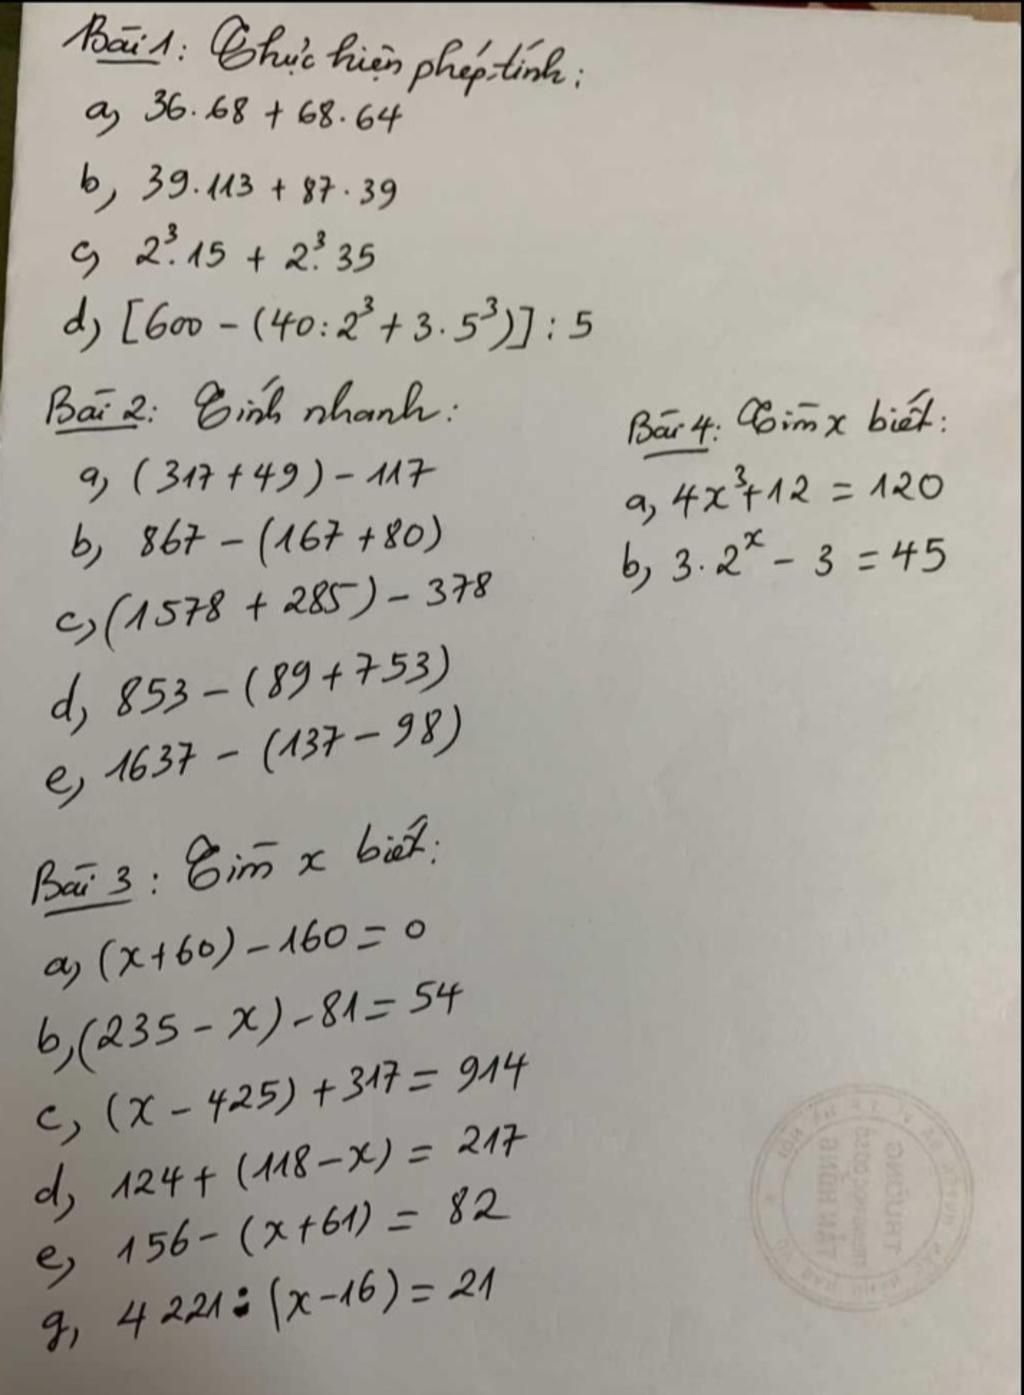 Bài 1: Thực hiện phép tính:
a, 36.68 + 68.64
b, 39.113 + 87.39
c, 2³.15 + 2³.35
d, [600 - (40:2³ + 3.5³)] : 5
Bài 2: Tính nhanh:
a, (317 + 49) - 117
b, 867 - (167 + 80)
c, (1578 + 285) - 378
d, 853 - (89 + 753)
e, 1637 - (137 - 98)
Bài 3: Tìm x biết:
a, (x + 60) - 160 = 0
b, (235 - x) - 81 = 54
c, (x - 425) + 317 = 914
d, 124 + (118 - x) = 217
e, 156 - (x + 61) = 82
g, 4221 : (x - 16) = 21
Bài 4: Tìm x biết:
a, 4x³ + 12 = 120
b, 3.2ˣ - 3 = 45